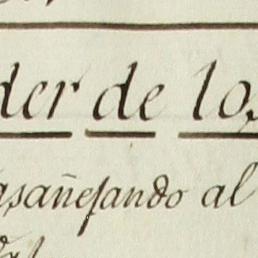 der de los
asañejando al